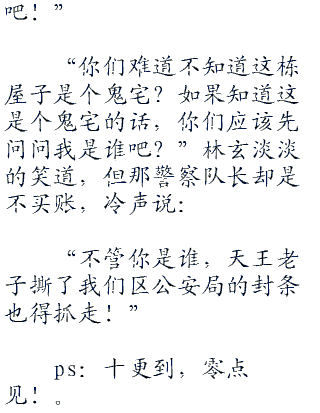 吧！”
“你们难道不知道这栋
屋子是个鬼宅？如果知道这
是个鬼宅的话，你们应该先
问问我是谁吧？”林玄淡淡
的笑道，但那警察队长却是
不买账，冷声说：
“不管你是谁，天王老
子撕了我们区公安局的封条
也得抓走！”
ps：十更到，零点
见！。